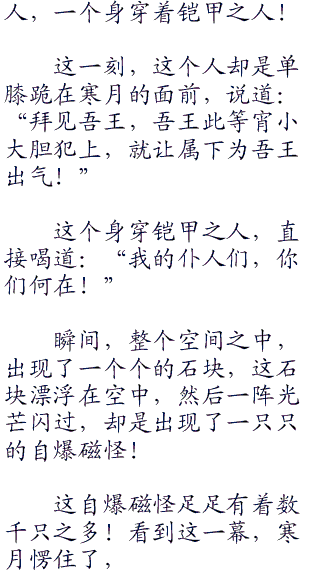 人，一个身穿着铠甲之人！
这一刻，这个人却是单
膝跪在寒月的面前，说道：
“拜见吾王，吾王此等宵小
大胆犯上，就让属下为吾王
出气！”
这个身穿铠甲之人，直
接喝道：“我的仆人们，你
们何在！”
瞬间，整个空间之中，
出现了一个个的石块，这石
块漂浮在空中，然后一阵光
芒闪过，却是出现了一只只
的自爆磁怪！
这自爆磁怪足足有着数
千只之多！看到这一幕，寒
月愣住了，